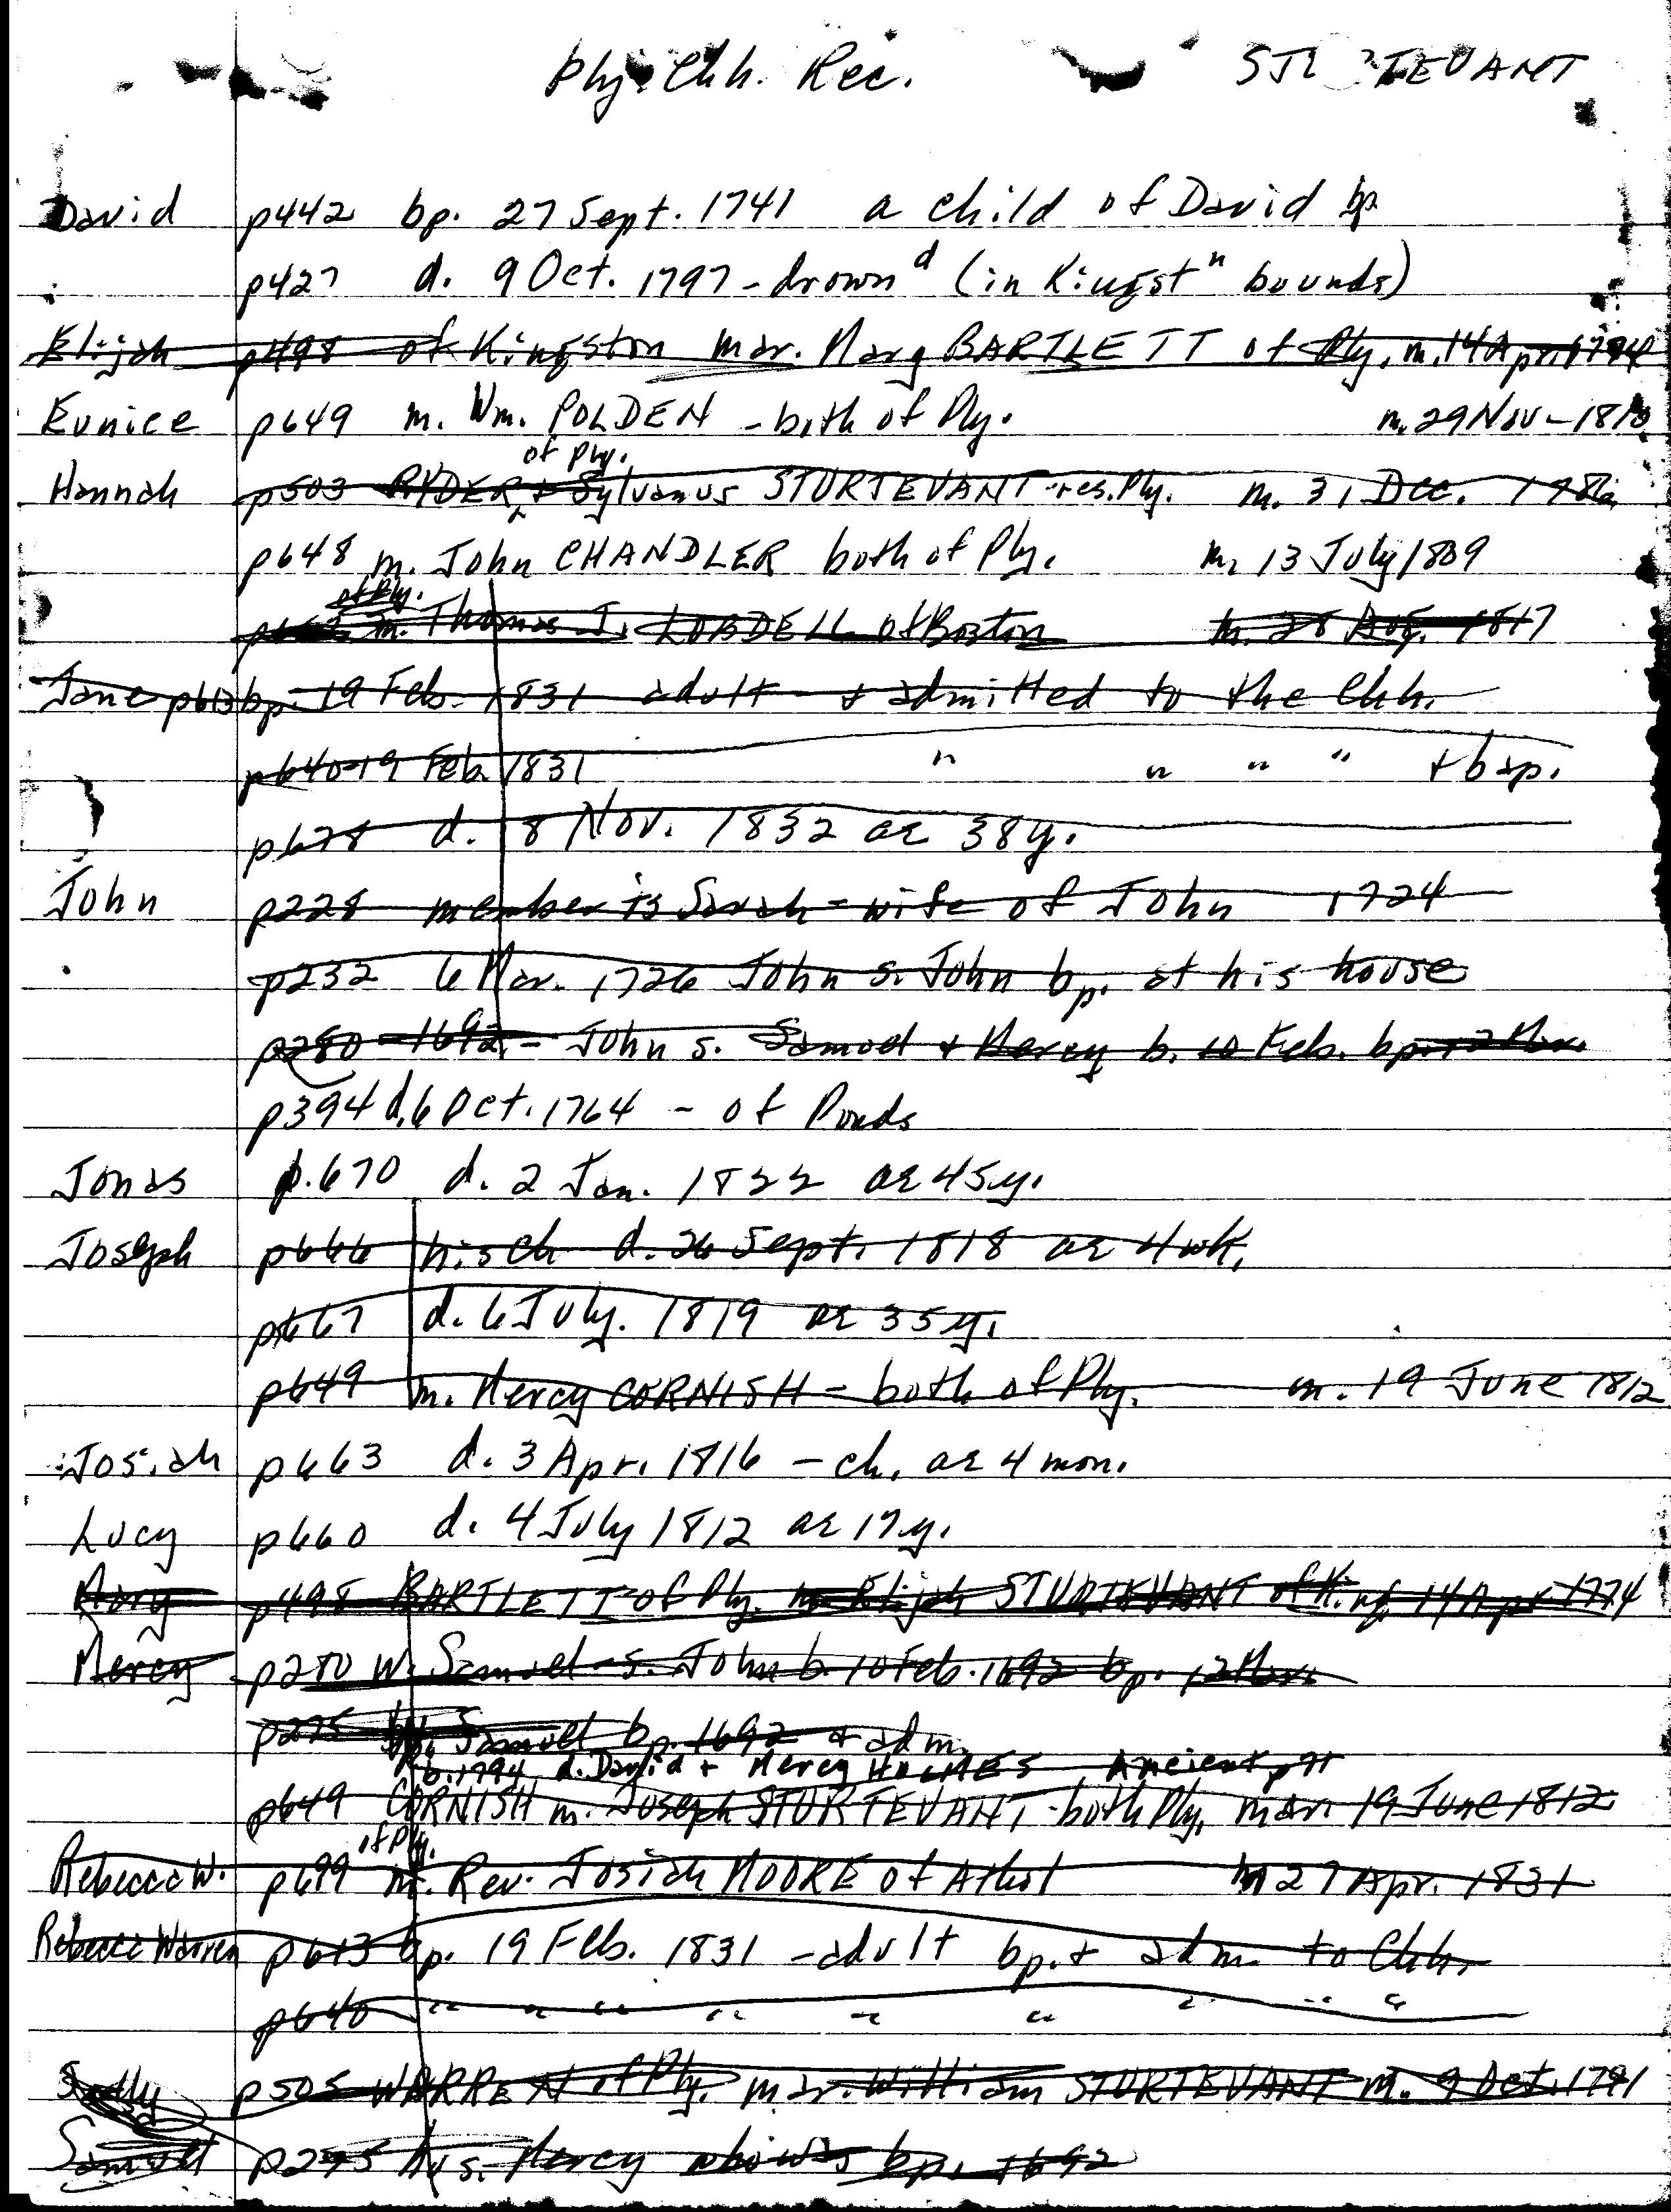 Ply. Chh. Rec. STURTEVANT
David p442 bp. 27 Sept. 1741 a child of David bp.
p427 d. 9 Oct. 1797 - drown d (in Kingst n bounds)
Elijah p498 of Kingston mar. Mary BARTLETT of Ply. m. 14 Apr. 1774
Eunice p649 m. Wm. POLDEN - both of Ply. m. 29 Nov - 1810
of Ply.
Hannah p503 RYDER + Sylvanus STURTEVANT - res. Ply. m. 31 Dec. 1786
p648 m. John CHANDLER both of Ply. m. 13 July 1809
of Ply.
m. Thomas J. LOBDELL of Boston m. 28 Aug. 1817
Jane p613 bp. 19 Feb. 1831 adult - + admitted to the Chh.
p640 - 19 Feb. 1831 " " " " + bap.
p678 d. 8 Nov. 1832 ae 38 y.
John p228 member is Sarah - wife of John 1724
p232 6 Mar. 1726 John s. John bp. at his house
p280 - 1692 - John s. Samuel + Mercy b. 10 Feb. bp. 12 Mar.
p394 d. 6 Oct. 1764 - of Ponds
Jonas p.670 d. 2 Jan. 1822 ae 45 y.
Joseph p666 his ch d. 26 Sept. 1818 ae 4 wk.
p667 d. 6 July. 1819 ae 35 y.
p649 m. Mercy CORNISH - both of Ply. m. 19 June 1812
Josiah p663 d. 3 Apr. 1816 - ch. ae 4 mon.
Lucy p660 d. 4 July 1812 ae 17 y.
Mary p498 BARTLETT of Ply. m. Elijah STURTEVANT of King. 14 Apr 1774
Mercy p280 w. Samuel - s. John b. 10 Feb. 1692 bp. 12 Mar.
p275 Samuel bp. 1692 + adm.
b. 1794 d. David + Mercy HOLMES Ancient
p649 CORNISH m. Joseph STURTEVANT - both Ply. mar. 19 June 1812
of Ply.
Rebecca W. p699 m. Rev. Josiah MOORE of Athol m 27 Apr. 1831
Rebecca Warren p613 bp. 19 Feb. 1831 - adult bp. + adm. to Chh.
p640 " " " " " " " " "
Sally p505 WARREN of Ply. mar. William STURTEVANT m. 9 Oct. 1791
Samuel p275 hus. Mercy who was bp. 1692